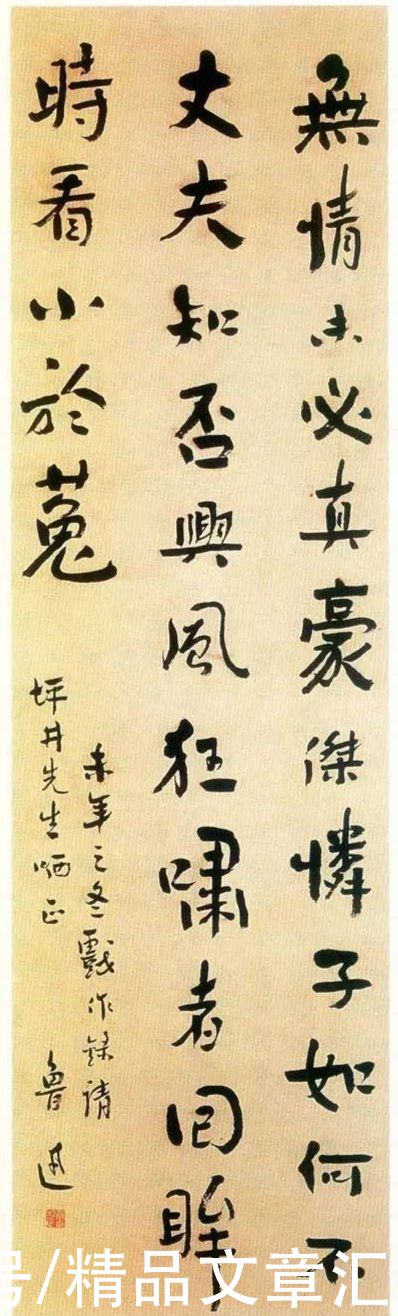 無情未必真豪傑憐子如何不
丈夫知否興風狂嘯者回眸
時看小於菟
未年之冬戲作錄請
坪井先生哂正
魯迅
号/精品文章汇